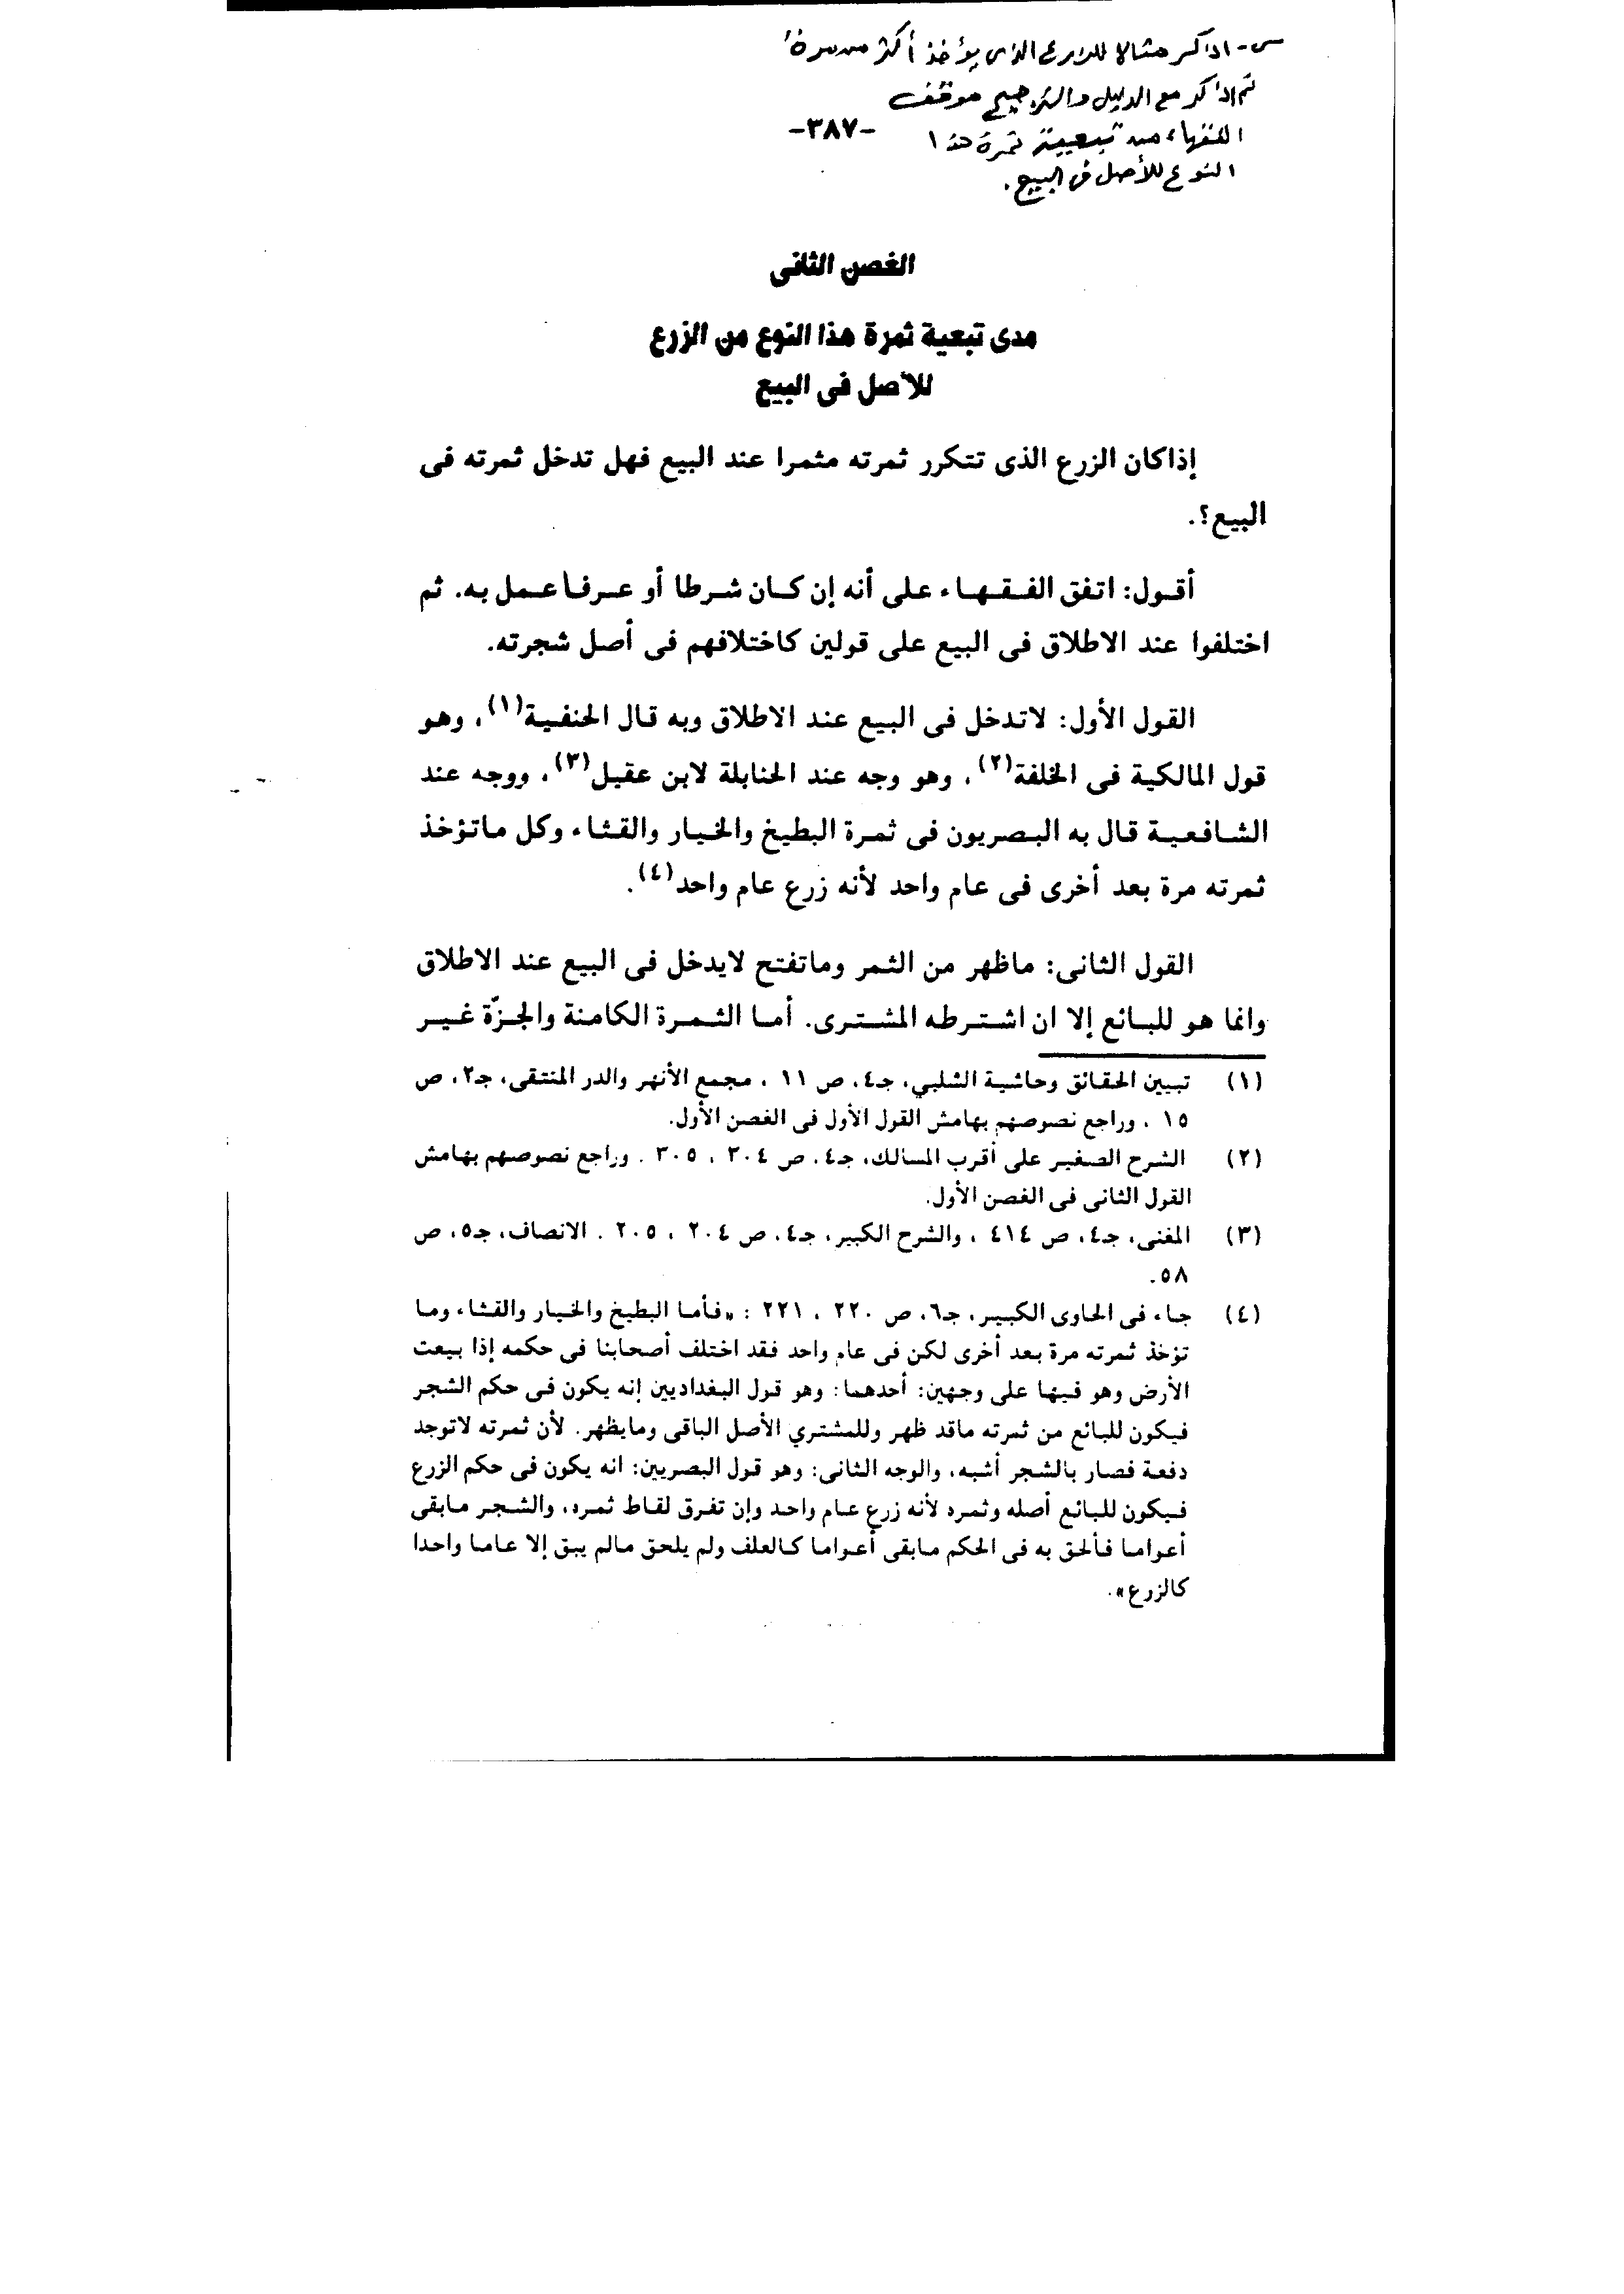 س - اذكر مثالا للزرع الذى يؤخذ أكثر من مرة
ثم اذكر مع الدليل والترجيح موقف
الفقهاء من تبعية ثمرة هذا
-٣٨٧-
النوع للأصل فى البيع.
الغصن الثانى
مدى تبعية ثمرة هذا النوع من الزرع
للأصل فى البيع
إذاكان الزرع الذى تتكرر ثمرته مثمرا عند البيع فهل تدخل ثمرته فى
البيع؟.
أقول: اتفق الفقهاء على أنه إن كان شرطا أو عرفا عمل به. ثم
اختلفوا عند الاطلاق فى البيع على قولين كاختلافهم فى أصل شجرته.
القول الأول: لاتدخل فى البيع عند الاطلاق وبه قال الحنفية(١)، وهو
قول المالكية فى الخلفة(٢)، وهو وجه عند الحنابلة لابن عقيل(٣)، ووجه عند
الشافعية قال به البصريون فى ثمرة البطيخ والخيار والقثاء وكل ماتؤخذ
ثمرته مرة بعد أخرى فى عام واحد لأنه زرع عام واحد(٤).
القول الثانى: ماظهر من الثمر وماتفتح لايدخل فى البيع عند الاطلاق
وانما هو للبائع إلا ان اشترطه المشترى. أما الثمرة الكامنة والجزّة غير
(١) تبيين الحقائق وحاشية الشلبي، جـ٤، ص ١١ ، مجمع الأنهر والدر المنتقى، جـ٢، ص
١٥ ، وراجع نصوصهم بهامش القول الأول فى الغصن الأول.
(٢) الشرح الصغير على أقرب المسالك، جـ٤، ص ٣٠٤ ، ٣٠٥ . وراجع نصوصهم بهامش
القول الثانى فى الغصن الأول.
(٣) المغنى، جـ٤، ص ٤١٤ ، والشرح الكبير، جـ٤، ص ٢٠٤ ، ٢٠٥ . الانصاف، جـ٥، ص
٥٨.
(٤) جاء فى الحاوى الكبير، جـ٦، ص ٢٢٠ ، ٢٢١ : «فأما البطيخ والخيار والقثاء وما
تؤخذ ثمرته مرة بعد أخرى لكن فى عام واحد فقد اختلف أصحابنا فى حكمه إذا بيعت
الأرض وهو فيها على وجهين: أحدهما: وهو قول البغداديين إنه يكون فى حكم الشجر
فيكون للبائع من ثمرته ماقد ظهر وللمشتري الأصل الباقى ومايظهر. لأن ثمرته لاتوجد
دفعة فصار بالشجر أشبه، والوجه الثانى: وهو قول البصريين: انه يكون فى حكم الزرع
فيكون للبائع أصله وثمره لأنه زرع عام واحد وإن تفرق لقاط ثمره، والشجر مابقى
أعواما فألحق به فى الحكم مابقى أعواما كالعلف ولم يلحق مالم يبق إلا عاما واحدا
كالزرع».